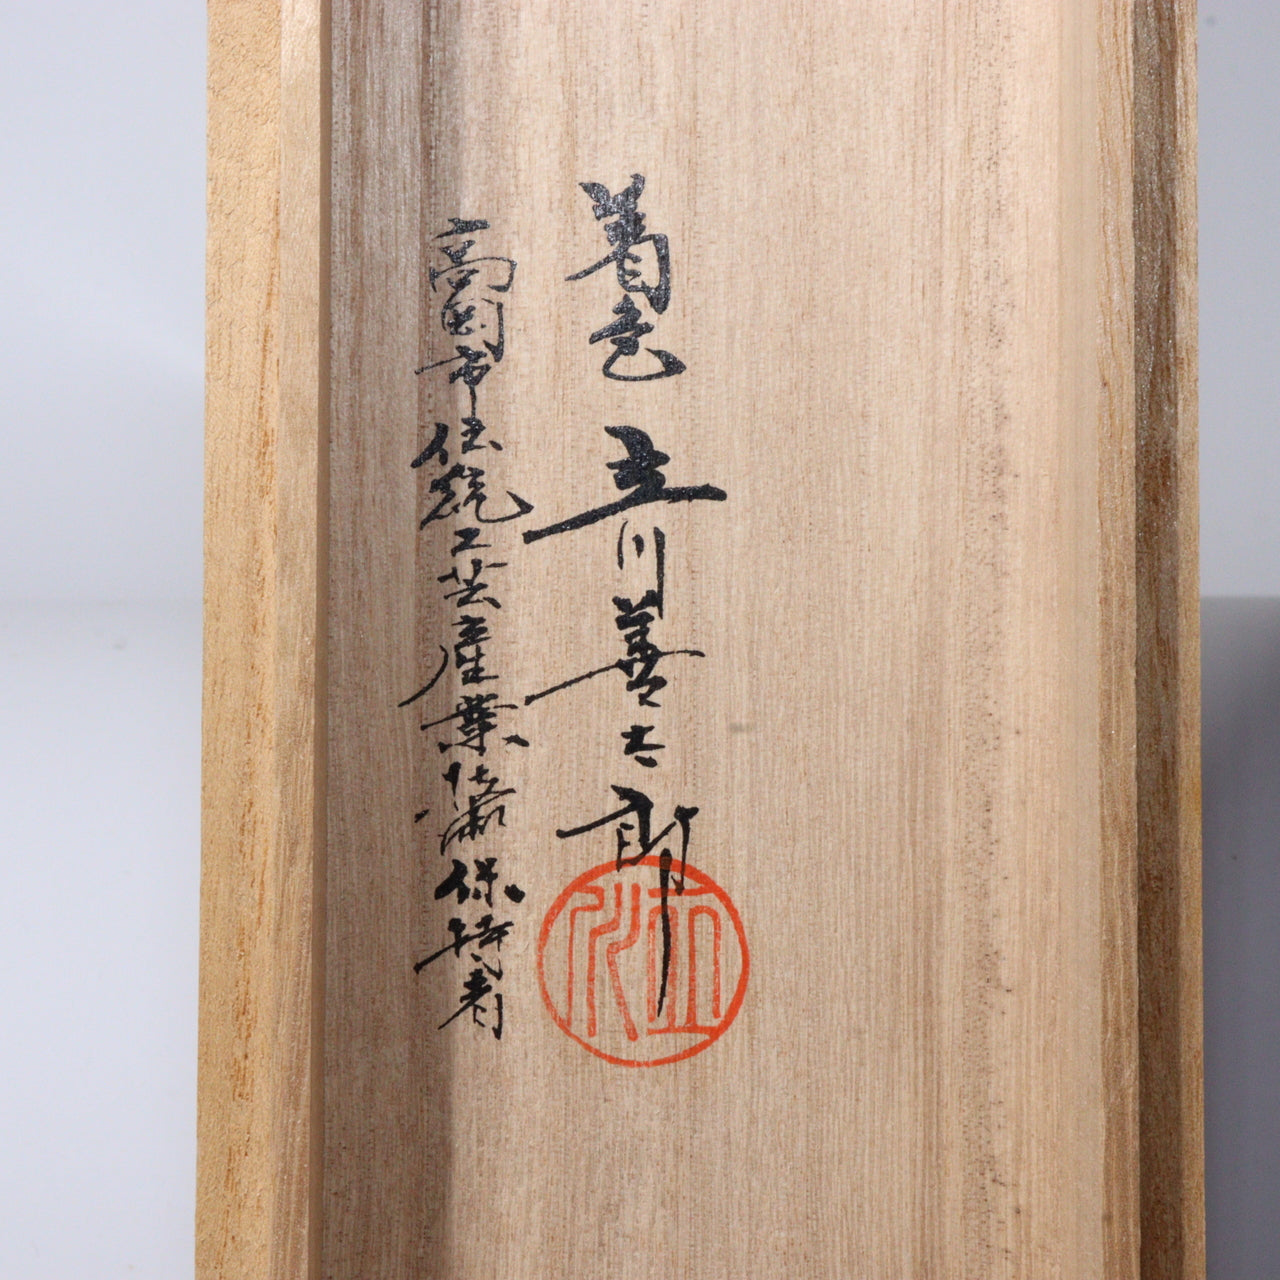 着色 立川善太郎
高岡市伝統工芸産業技術保持者
立川